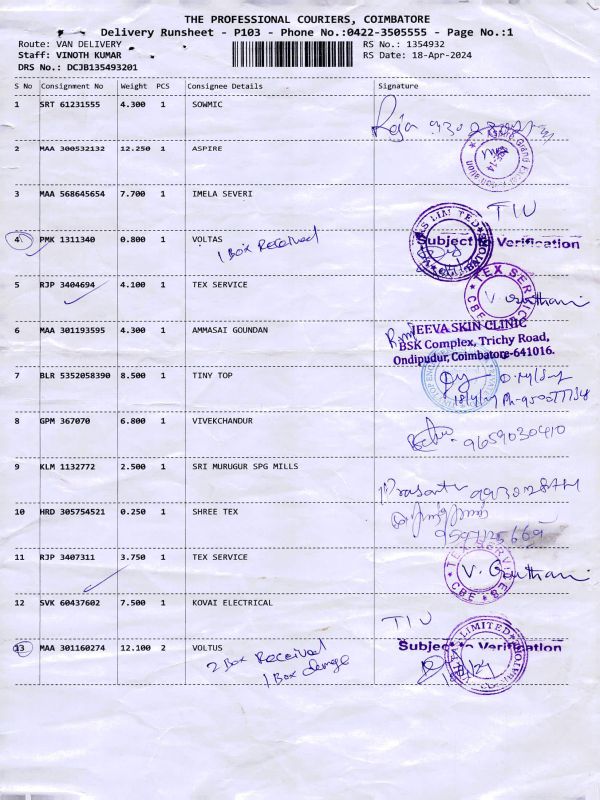 THE PROFESSIONAL COURIERS, COIMBATORE
Delivery Runsheet - P103 - Phone No.:0422-3505555 - Page No.:1
Route: VAN DELIVERY
RS No.: 1354932
Staff: VINOTH KUMAR
RS Date: 18-Apr-2024
DRS No.: DCJB135493201
S No Consignment No Weight PCS Consignee Details Signature
1 SRT 61231555 4.300 1 SOWMIC
Raja
2 MAA 300532132 12.250 1 ASPIRE
3 MAA 568645654 7.700 1 IMELA SEVERI
TIU
4 PMK 1311340 0.800 1 VOLTAS
1 Box Received
Subject to Verification
5 RJP 3404694 4.100 1 TEX SERVICE
TEX SERVICE
CBE
V. Gouthami
6 MAA 301193595 4.300 1 AMMASAI GOUNDAN
JEEVA SKIN CLINIC
BSK Complex, Trichy Road,
Ondipudur, Coimbatore-641016.
7 BLR 5352058390 8.500 1 TINY TOP
8 GPM 367070 6.800 1 VIVEKCHANDUR
9659030410
9 KLM 1132772 2.500 1 SRI MURUGUR SPG MILLS
Prasanth
10 HRD 305754521 0.250 1 SHREE TEX
11 RJP 3407311 3.750 1 TEX SERVICE
TEX SERVICE
CBE
V. Gouthami
12 SVK 60437602 7.500 1 KOVAI ELECTRICAL
TIU
13 MAA 301160274 12.100 2 VOLTUS
2 Box Received
1 Box damage
Subject to Verification